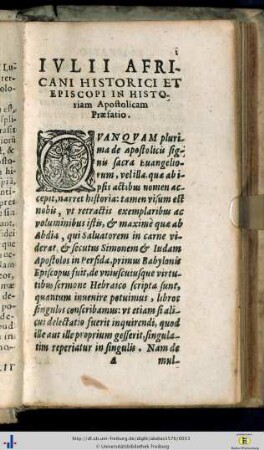 1
IVLII AFRI-
CANI HISTORICI ET
EPISCOPI IN HISTO
riam Apostolicam
Præfatio.
QVANQVAM pluri
ma de apostolicis sig
nis sacra Euangelio-
rum, vel illa quæ ab i-
psis actibus nomen ac-
cepit, narret historia: tamen visum est
nobis, vt retractis exemplaribus ac
voluminibus istis, & maximè quæ ab
Abdia, qui Saluatorem in carne vi-
derat & secutus Simonem & Iudam
Apostolos in Persida, primus Babyloniæ
Episcopus fuit, de vniuscuiusque virtu-
tibus sermone Hebraico scripta sunt,
quantum inuenire potuimus, libros
singulos conscribamus: vt etiam si ali-
cui delectatio fuerit inquirendi, quod
ille aut ille proprium gesserit, singula-
tim reperiatur in singulis. Nam de
A mul-
http://dl.ub.uni-freiburg.de/diglit/abdias1576/0053
© Universitätsbibliothek Freiburg